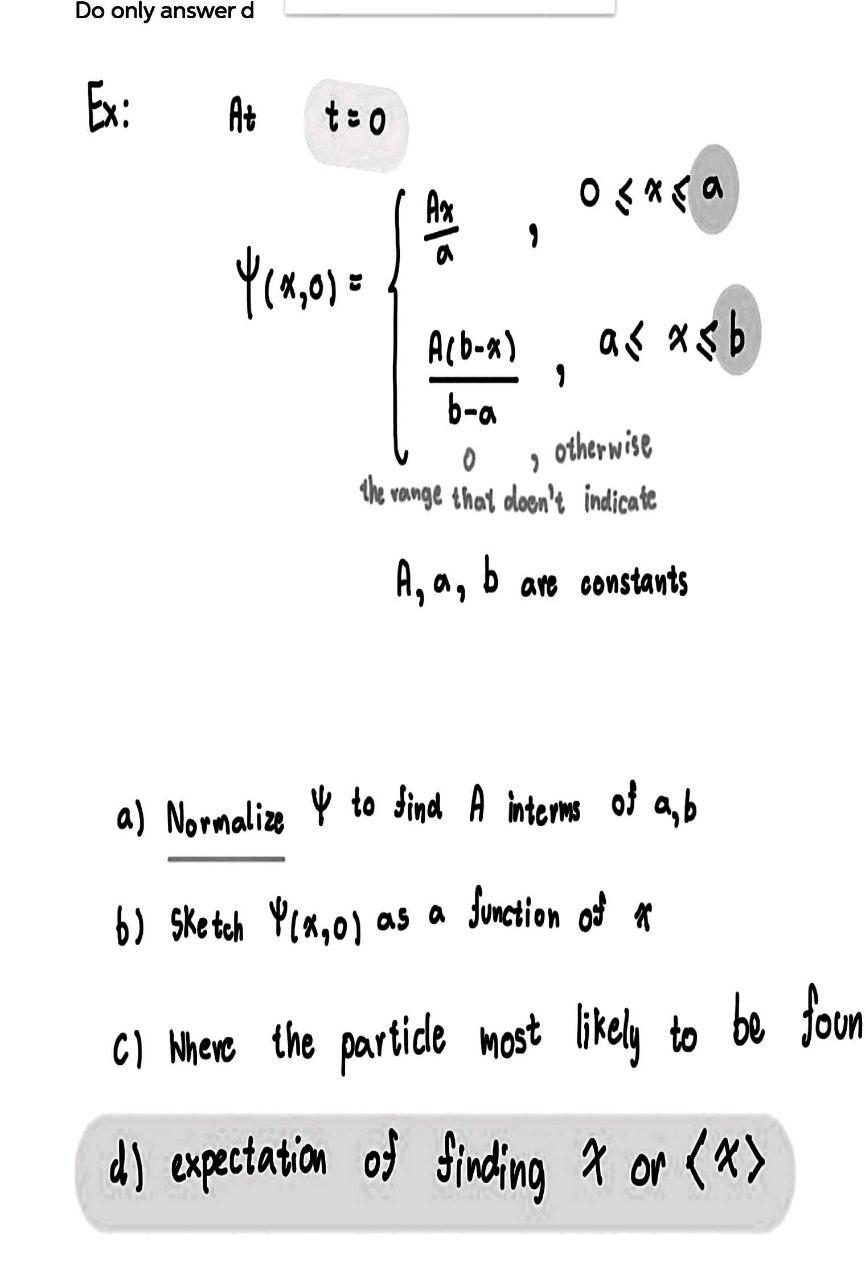 Do only answer d
Ex: At t = 0
Ψ(x,0) =
Ax/a , 0 ≤ x ≤ a
A(b-x)/b-a , a ≤ x ≤ b
0 , otherwise
the range that doen't indicate
A, a, b are constants
a) Normalize Ψ to find A interms of a,b
b) Sketch Ψ(x,0) as a function of x
c) Where the particle most likely to be foun
d) expectation of finding x or <x>